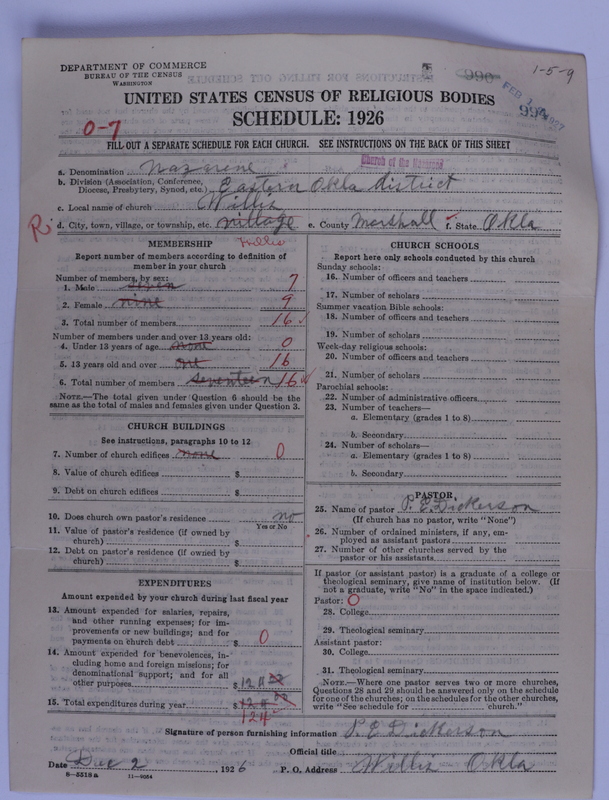 DEPARTMENT OF COMMERCE
BUREAU OF THE CENSUS
WASHINGTON
990
1-5-9
FEB 1 1927
994
UNITED STATES CENSUS OF RELIGIOUS BODIES
SCHEDULE: 1926
0-7
FILL OUT A SEPARATE SCHEDULE FOR EACH CHURCH. SEE INSTRUCTIONS ON THE BACK OF THIS SHEET
Church of the Nazarene
a. Denomination Nazarene
b. Division (Association, Conference, Diocese, Presbytery, Synod, etc.) Eastern Okla district
c. Local name of church Willis
R
d. City, town, village, or township, etc. village e. County Marshall f. State Okla
Willis
MEMBERSHIP
Report number of members according to definition of
member in your church
Number of members, by sex:
1. Male seven 7
2. Female nine 9
3. Total number of members 16
Number of members under and over 13 years old:
4. Under 13 years of age 0
5. 13 years old and over 16
6. Total number of members seventeen 16
NOTE.—The total given under Question 6 should be
same as the total of males and females given under Question 3.
CHURCH BUILDINGS
See instructions, paragraphs 10 to 12
7. Number of church edifices none 0
8. Value of church edifices $
9. Debt on church edifices $
10. Does church own pastor's residence no
Yes or No
11. Value of pastor's residence (if owned by
church) $
12. Debt on pastor's residence (if owned by
church) $
EXPENDITURES
Amount expended by your church during last fiscal year
13. Amount expended for salaries, repairs,
and other running expenses; for im-
provements or new buildings; and for
payments on church debt $ 0
14. Amount expended for benevolences, in-
cluding home and foreign missions; for
denominational support; and for all
other purposes $ 124
15. Total expenditures during year $ 124
124
CHURCH SCHOOLS
Report here only schools conducted by this church
Sunday schools:
16. Number of officers and teachers
17. Number of scholars
Summer vacation Bible schools:
18. Number of officers and teachers
19. Number of scholars
Week-day religious schools:
20. Number of officers and teachers
21. Number of scholars
Parochial schools:
22. Number of administrative officers
23. Number of teachers—
a. Elementary (grades 1 to 8)
b. Secondary
24. Number of scholars—
a. Elementary (grades 1 to 8)
b. Secondary
PASTOR
25. Name of pastor P. E. Dickerson
(If church has no pastor, write "None")
26. Number of ordained ministers, if any, em-
ployed as assistant pastors
27. Number of other churches served by the
pastor or his assistants
If pastor (or assistant pastor) is a graduate of a college or
theological seminary, give name of institution below. (If
not a graduate, write "No" in the space indicated.)
Pastor: 0
28. College
29. Theological seminary
Assistant pastor:
30. College
31. Theological seminary
NOTE.—Where one pastor serves two or more churches,
Questions 28 and 29 should be answered only on the schedule
for one of the churches; on the schedules for the other churches,
write "See schedule for church."
Signature of person furnishing information P. E. Dickerson
Official title
Date Dec 2, 1926 P. O. Address Willis Okla
8-5518a 11-9064